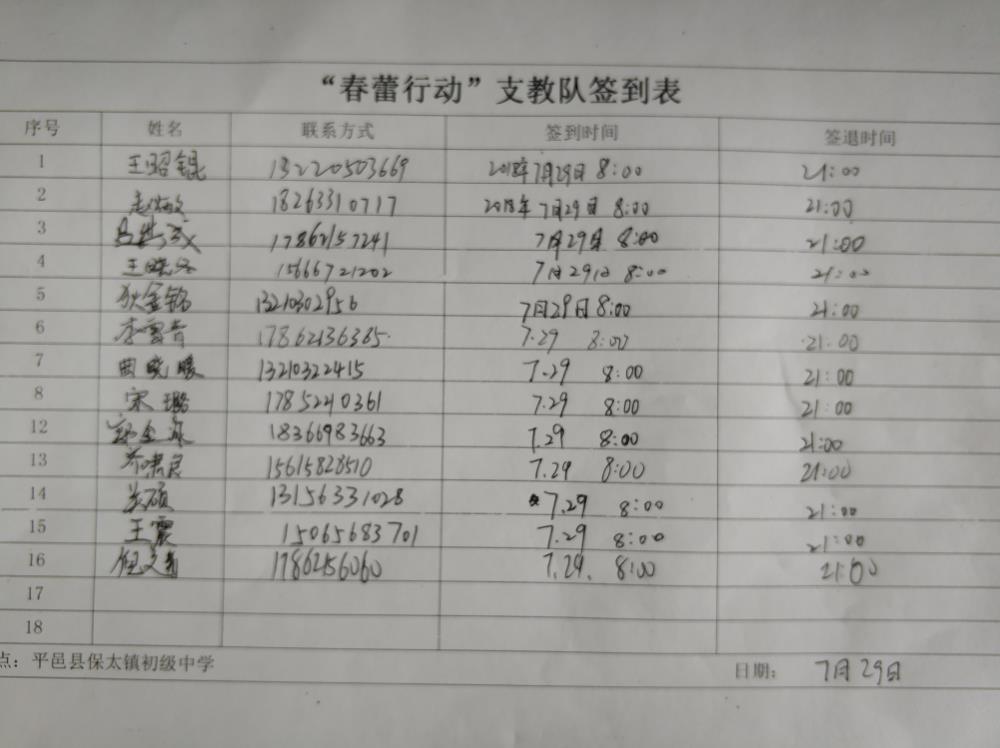 “春蕾行动”支教队签到表
序号 姓名 联系方式 签到时间 签退时间
1 王昭锟 13220503669 2018年7月29日 8:00 21:00
2 18263310717 2018年7月29日 8:00 21:00
3 17862157241 7月29日 8:00 21:00
4 王晓冬 15666721202 7月29日 8:00 21:00
5 狄金铭 13210302956 7月29日 8:00 21:00
6 李雪青 17862136385 7.29 8:00 21:00
7 曲晓暖 13210322415 7.29 8:00 21:00
8 宋璐 17852210361 7.29 8:00 21:00
12 18366983663 7.29 8:00 21:00
13 15615828510 7.29 8:00 21:00
14 13156331028 7.29 8:00 21:00
15 王震 15065683701 7.29 8:00 21:00
16 17862156060 7.29. 8:00 21:00
17
18
点：平邑县保太镇初级中学 日期： 7月29日